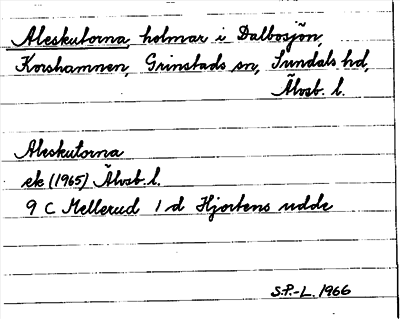 Aleskutorna, holmar i Dalbosjön,
Korshamnen, Grinstads sn, Sundals hd,
Älvsb. l.
Aleskutorna
ek (1965) Älvsb. l.
9 C Mellerud 1 d Hjortens udde
S.P.-L. 1966